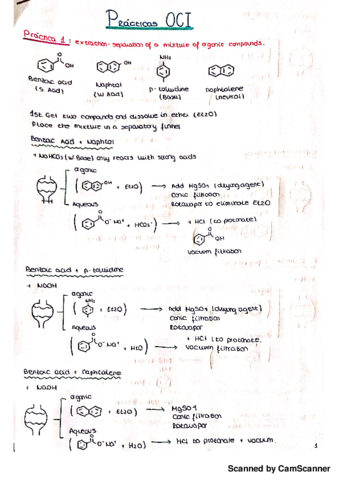 Prácticas OCI
Práctica 1: extraction: separation of a mixture of organic compounds.
Benzoic acid
(S. Acid)
Naphtol
(W Acid)
NH2
p-toluidine
(Base)
naphtalene
(neutral)
1st Get two compounds and dissolve in ether (Et2O)
Place the mixture in a separatory funnel
Benzoic Acid + Naphtol
+ NaHCO3 (W Base) only reacts with strong acids
organic
( OH + Et2O) → Add MgSO4 (drying agent)
Conic filtration
Rotavapor to eliminate Et2O
Aqueous
( O⁻Na⁺ + HCO3⁻) → + HCl (to protonate)
OH
Vacuum filtration
Benzoic acid + p-toluidine
+ NaOH
organic
NH2
( + Et2O) → Add MgSO4 (drying agent)
Conic filtration
Rotavapor
Aqueous
( O⁻Na⁺ + H2O) → + HCl (to protonate)
vacuum filtration
Benzoic acid + Naphtalene
+ NaOH
organic
( + Et2O) → MgSO4
Conic filtration
Rotavapor
Aqueous
( O⁻Na⁺ + H2O) → HCl to protonate + vacuum.
1
Scanned by CamScanner